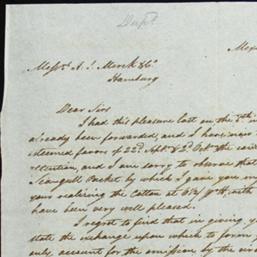 Dupt.
Mex
Messrs. H. J. Merck & Co.
Hamburg
Dear Sirs
I had this pleasure last on the 8th in
already been forwarded, and I have now
esteemed favor of 22d. Sept & 2d. Oct the
attention, and I am sorry to observe that
Seagull Packet by which I gave you
your realizing the Cotton at 6 3/4 with
have been very well pleased.
I regret to find that in giving, y
state the exchange upon which to form
only account for the omission by the